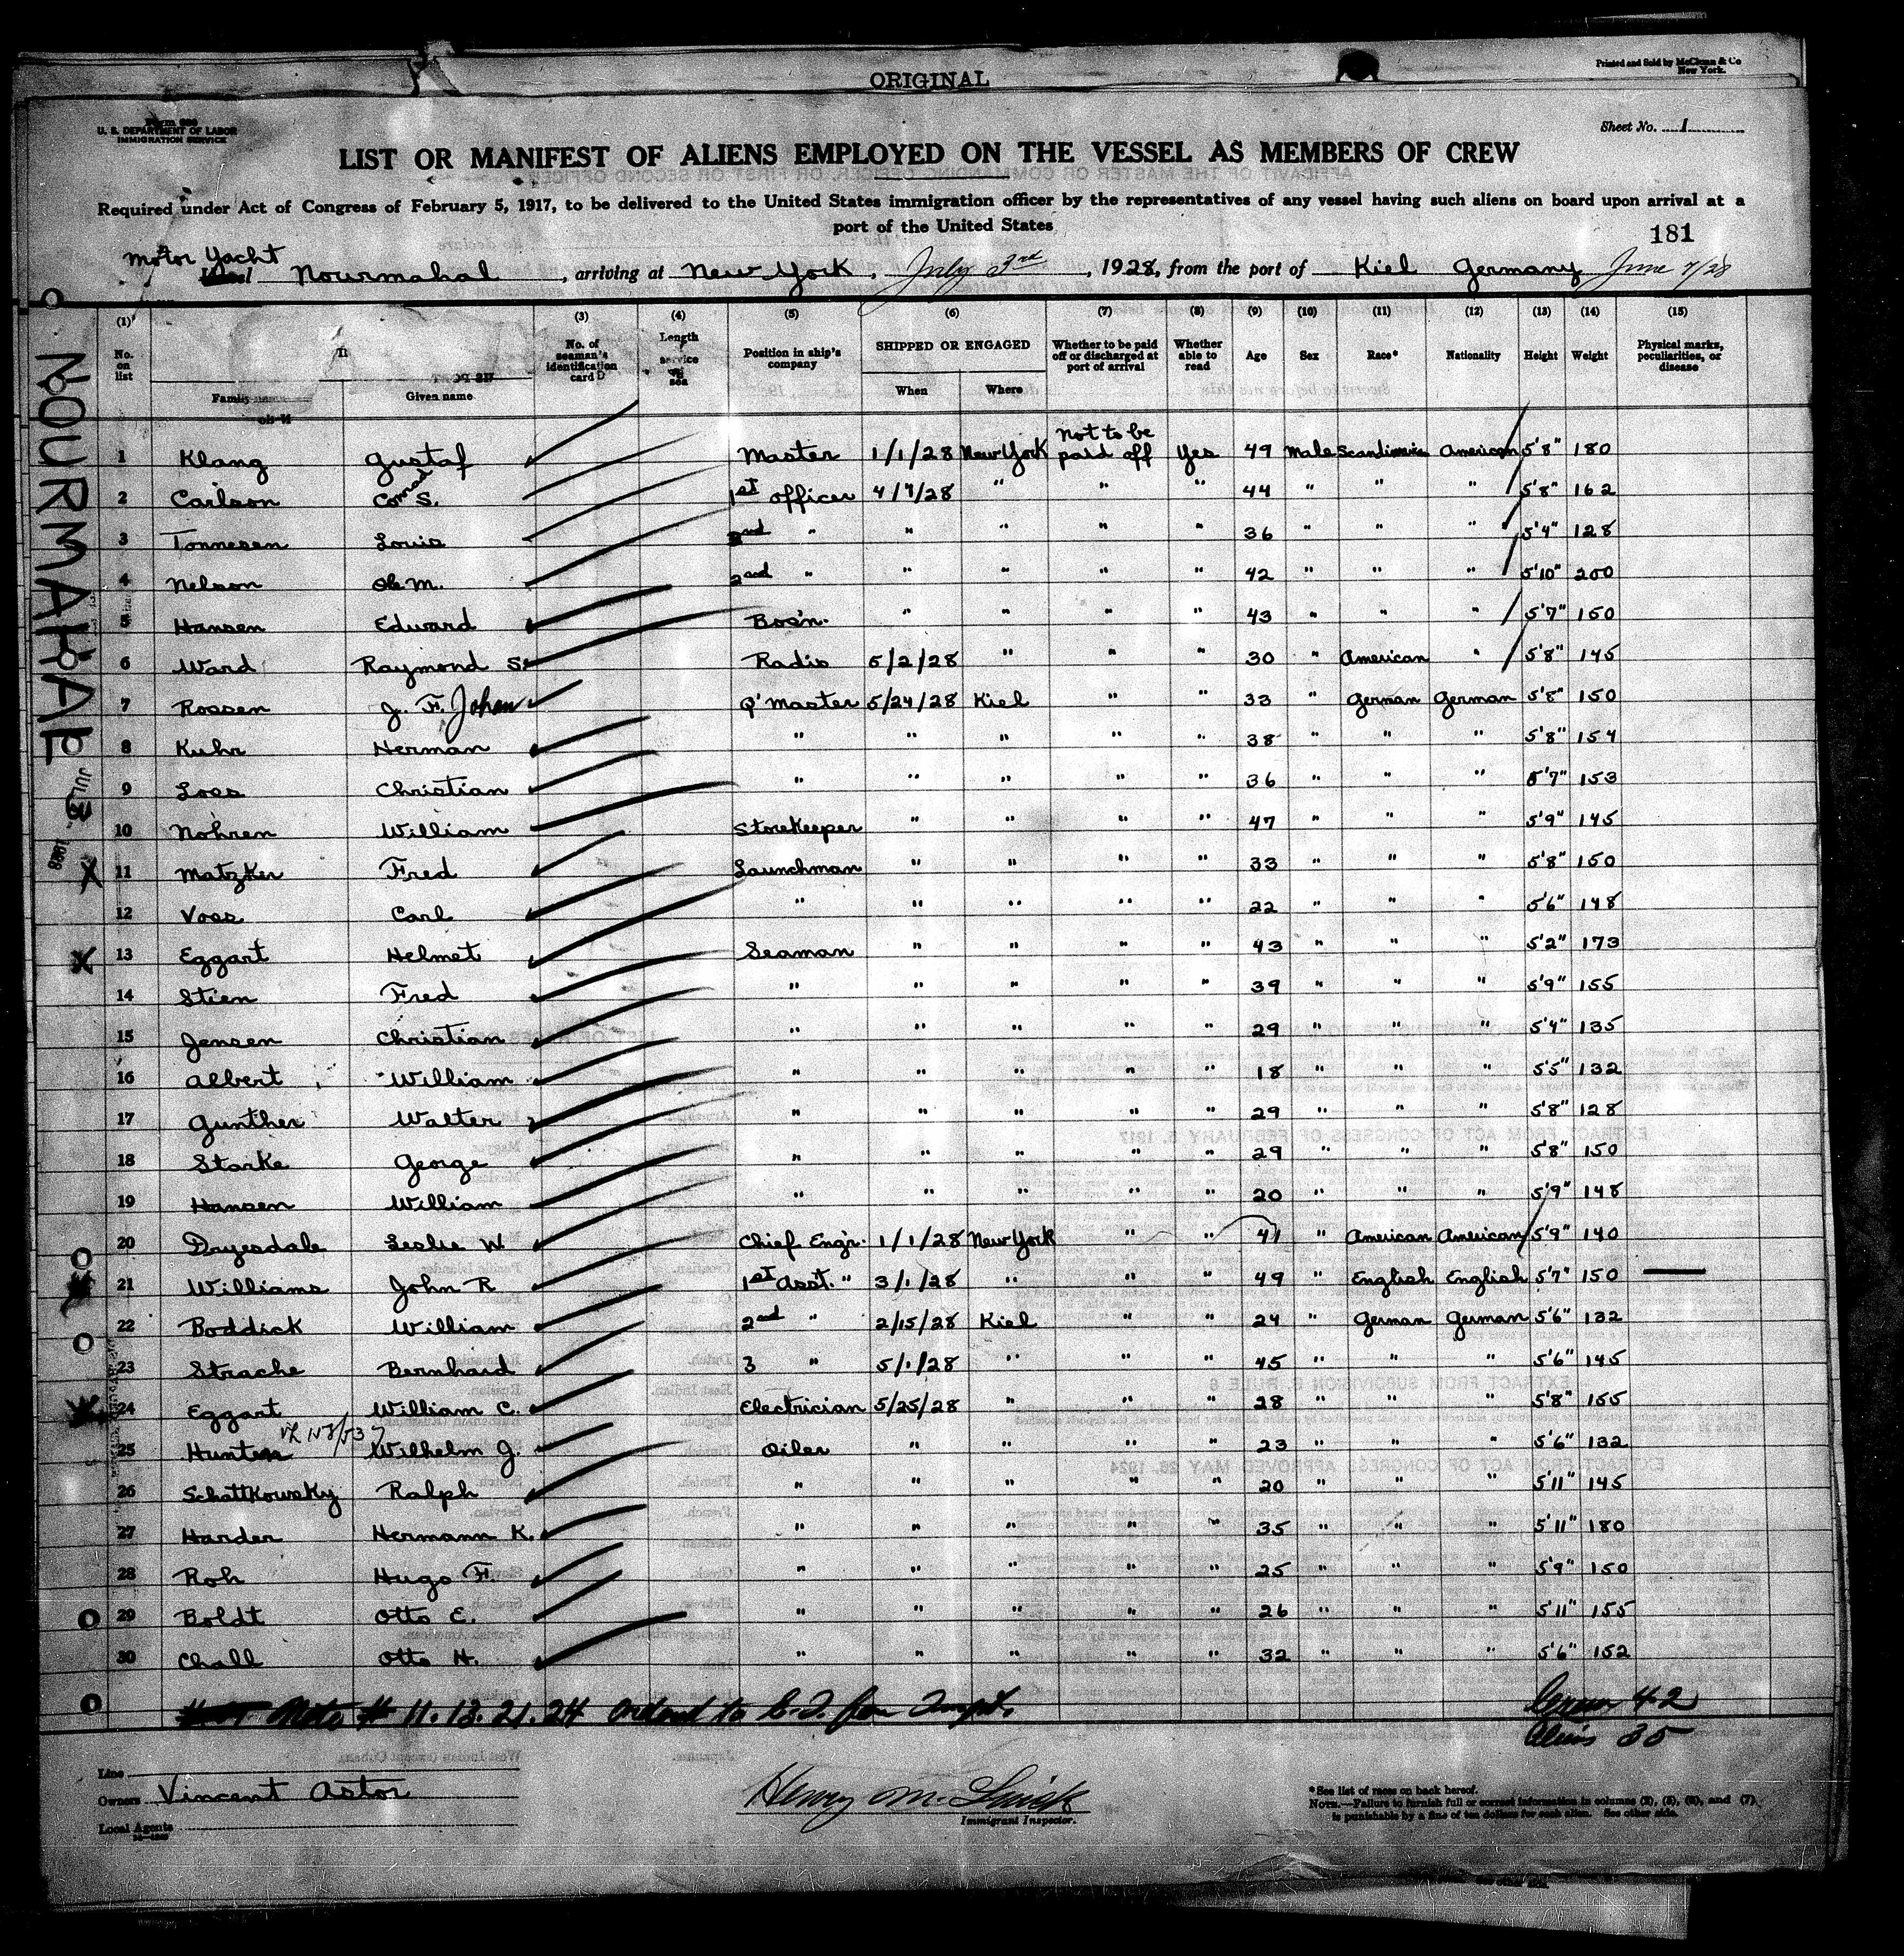 ORIGINAL
Printed and Sold by McClunn & Co
New York.
U. S. DEPARTMENT OF LABOR
IMMIGRATION SERVICE
Sheet No. 1
LIST OR MANIFEST OF ALIENS EMPLOYED ON THE VESSEL AS MEMBERS OF CREW
Required under Act of Congress of February 5, 1917, to be delivered to the United States immigration officer by the representatives of any vessel having such aliens on board upon arrival at a
port of the United States
181
Motor Yacht
Nourmahal, arriving at New York, July 3rd, 1928, from the port of Kiel Germany June 7/28
NOURMAHAL
(1) (3) (4) (5) (6) (7) (8) (9) (10) (11) (12) (13) (14) (15)
No. on list Family name Given name No. of seaman's identification card Length service sea Position in ship's company SHIPPED OR ENGAGED When Where Whether to be paid off or discharged at port of arrival Whether able to read Age Sex Race* Nationality Height Weight Physical marks, peculiarities, or disease
1 Klang Gustaf Master 1/1/28 New York Not to be paid off Yes 49 Male Scandinavian American 5'8" 180
2 Carlson Conrad S. 1st Officer 4/7/28 " " " 44 " " " 5'8" 162
3 Tonnesen Louis 2nd " " " " " 36 " " " 5'4" 128
4 Nelson M. 2nd " " " " " 42 " " " 5'10" 200
5 Hansen Edward Bos'n. " " " " 43 " " " 5'7" 150
6 Ward Raymond S. Radio 5/2/28 " " " 30 " American " 5'8" 145
7 Rossen J. F. Johan Q'Master 5/24/28 Kiel " " 33 " German German 5'8" 150
8 Kuhr Herman " " " " " 38 " " " 5'8" 154
9 Loes Christian " " " " " 36 " " " 5'7" 153
10 Nohren William Storekeeper " " " " 47 " " " 5'9" 145
11 Matzker Fred Launchman " " " " 33 " " " 5'8" 150
12 Voss Carl " " " " " 22 " " " 5'6" 148
13 Eggart Helmet Seaman " " " " 43 " " " 5'2" 173
14 Stien Fred " " " " " 39 " " " 5'9" 155
15 Jensen Christian " " " " " 29 " " " 5'4" 135
16 Albert William " " " " " 18 " " " 5'5" 132
17 Gunther Walter " " " " " 29 " " " 5'8" 128
18 Starke George " " " " " 29 " " " 5'8" 150
19 Hansen William " " " " " 20 " " " 5'9" 148
20 Dryesdale Leslie W. Chief Engr. 1/1/28 New York " " 41 " American American 5'9" 140
21 Williams John R 1st Asst. " 3/1/28 " " " 49 " English English 5'7" 150
22 Boddick William 2nd " 2/15/28 Kiel " " 24 " German German 5'6" 132
23 Strache Bernhard 3 " 5/1/28 " " " 45 " " " 5'6" 145
24 Eggart William C. Electrician 5/25/28 " " " 28 " " " 5'8" 155
25 Wilhelm J. Oiler " " " " 23 " " " 5'6" 132
26 Schattkowsky Ralph " " " " " 20 " " " 5'11" 145
27 Harder Hermann K. " " " " " 35 " " " 5'11" 180
28 Roh Hugo F. " " " " " 25 " " " 5'9" 150
29 Boldt Otto E. " " " " " 26 " " " 5'11" 155
30 Chall Otto H. " " " " " 32 " " " 5'6" 152
Note # 11. 13. 21. 24
42
Aliens 35
Line
Owners Vincent Astor
Local Agents
Henry M.
Immigrant Inspector.
*See list of races on back hereof.
NOTE.—Failure to furnish full or correct information in columns (2), (5), (6), and (7)
is punishable by a fine of ten dollars for each alien. See other side.